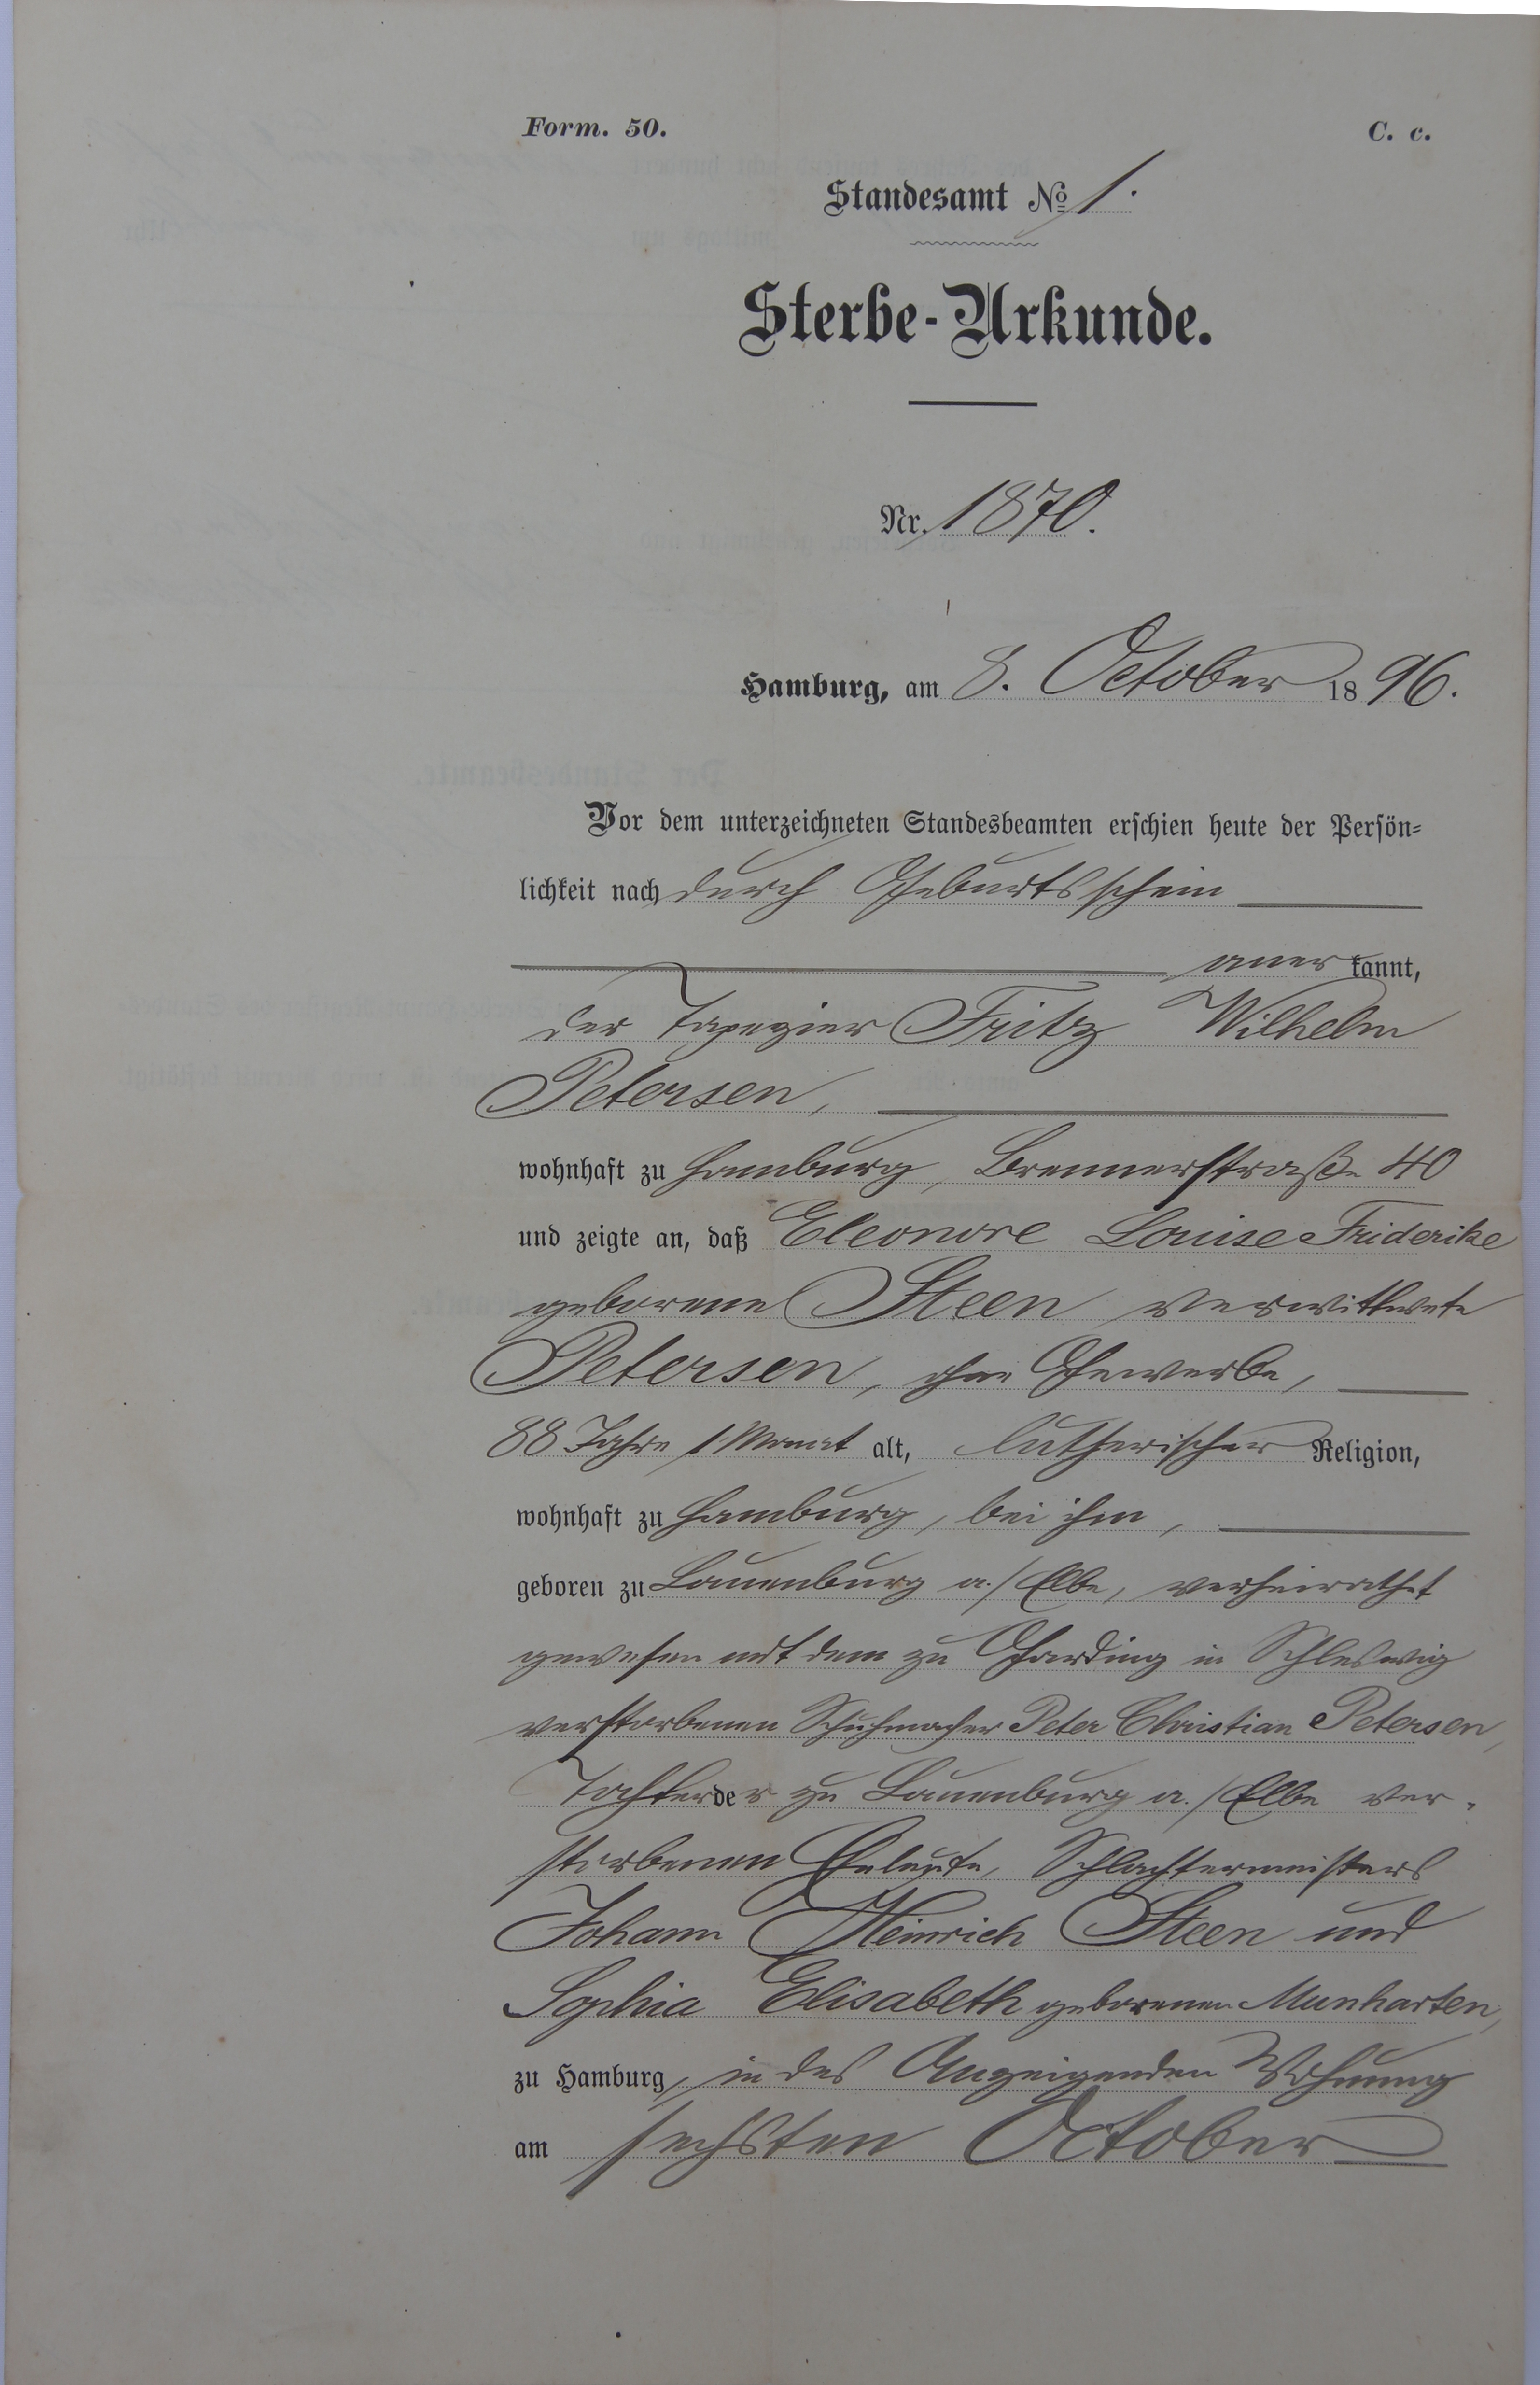 Form. 50.
C. c.
Standesamt No 1.
Sterbe-Urkunde.
Nr. 1870.
Hamburg, am 8. October 1896.
Vor dem unterzeichneten Standesbeamten erschien heute der Persön-
lichkeit nach durch Geburtsschein
anerkannt,
der Tapezier Fritz Wilhelm
Petersen,
wohnhaft zu Hamburg, Brennerstraße 40
und zeigte an, daß Eleonore Louise Friderike
geborene Steen verwittwete
Petersen, ohne Gewerbe,
88 Jahre 1 Monat alt, lutherischer Religion,
wohnhaft zu Hamburg, bei ihm,
geboren zu Lauenburg a./Elbe, verheirathet
gewesen mit dem zu Garding in Schleswig
verstorbenen Schuhmacher Peter Christian Petersen,
Tochter der zu Lauenburg a./Elbe ver-
storbenen Eheleute, Schlachtermeisters
Johann Heinrich Steen und
Sophia Elisabeth geborenen Munharten,
zu Hamburg, in des Anzeigenden Wohnung
am sechsten October